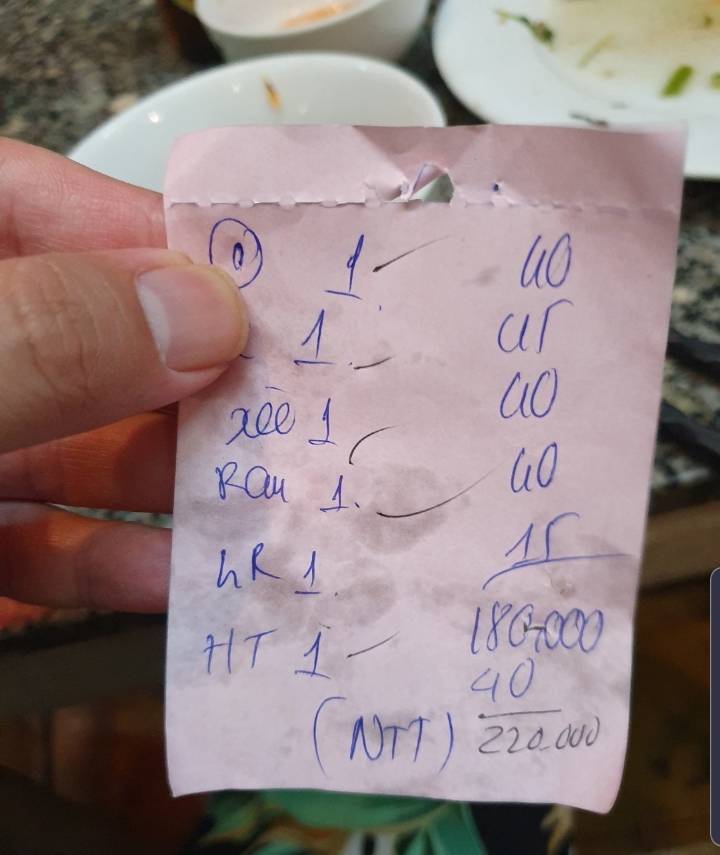 1 40
1 45
xèo 1 40
Rau 1. 40
hR 1 15
180.000
HT 1 40
(NTT) 220.000